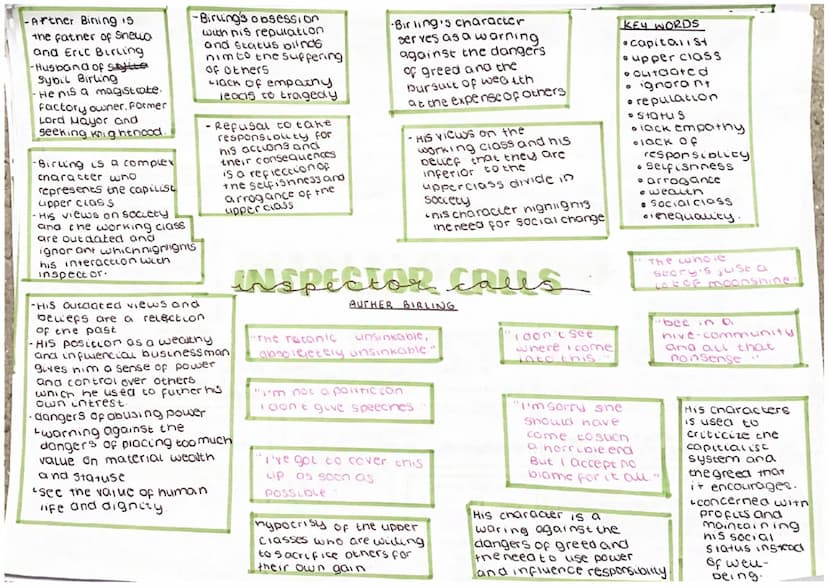 -Arther Birling is
the father of Shelia
and Eric Birling
-Husband of
Sybil Birling
-He his a magistate,
factory owner, former
Lord Mayor and
seeking knighthood.
-Birling's obsession
with his reputation
and status blinds
him to the suffering
of others
↳lack of empathy
leads to tragedy
-Birling's character
serves as a warning
against the dangers
of greed and the
pursuit of wealth
at the expense of others
KEY WORDS
•capitalist
•upper class
•outdated
•ignorant
•reputation
•status
•lack empathy
•lack of
responsiblity
•selfishness
•arrogance
•wealth
•social class
•inequality.
-Birling is a complex
character who
represents the capilist
upper class
-His views on society
and the working class
are outdated and
ignorant which highlights
his interaction with
inspector.
-Refusal to take
responsibility for
his actions and
their consequences
is a reflection of
the selfishness and
arrogance of the
upper class
-His views on the
working class and his
belief that they are
inferior to the
upper class divide in
society
↳his character highlights
the need for social change
INSPECTOR CALLS
inspector calls
AUTHER BIRLING
"The whole
story's just a
lot of moonshine."
-His outdated views and
beliefs are a relection
of the past
-His position as a wealthy
and influencial businessman
gives him a sense of power
and control over others
which he used to futher his
own intrest.
-dangers of abusing power
↳warning against the
dangers of placing too much
value on material wealth
and statuse
↳see the value of human
life and dignity
"The titanic unsinkable,
absolutely unsinkable"
"I don't see
where i come
into this."
"bee in a
hive-community
and all that
nonsense"
"I'm not a politician
I don't give speeches"
"I'm sorry she
should have
come to such
a horrible end
But I accept no
blame for it all."
His characters
is used to
criticize the
capitalist
system and
the greed that
it encourages.
↳concerned with
profits and
maintaining
his social
status instead
of well-
being.
"I've got to cover this
up as soon as
possible"
hypocrisy of the upper
classes who are willing
to sacrifice others for
their own gain
His character is a
waring against the
dangers of greed and
the need to use power
and influence responsibility